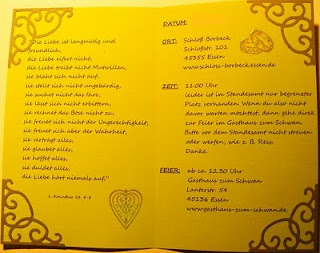 "Die Liebe ist langmütig und
freundlich,
die Liebe eifert nicht,
die Liebe treibt nicht Mutwillen,
sie bläht sich nicht auf,
sie stellt sich nicht ungebärdig,
sie suchet nicht das Ihre,
sie lässt sich nicht erbittern,
sie rechnet das Böse nicht zu,
sie freuet sich nicht der Ungerechtigkeit,
sie freut sich aber der Wahrheit,
sie verträgt alles,
sie glaubet alles,
sie hoffet alles,
sie duldet alles,
die Liebe hört niemals auf."
1. Korinther 13, 4-8
DATUM:
ORT: Schloß Borbeck
Schloßstr. 101
45355 Essen
www.schloss-borbeck.essen.de
ZEIT: 11:00 Uhr
leider ist im Standesamt nur begrenzter
Platz vorhanden. Wenn du also nicht
davor warten möchtest, dann gehe direkt
zur Feier im Gasthaus zum Schwan.
Bitte vor dem Standesamt nicht streuen
oder werfen, wie z. B. Reis.
Danke.
FEIER: ab ca. 12:30 Uhr
Gasthaus zum Schwan
Lanterstr. 54
45136 Essen
www.gasthaus-zum-schwan.de